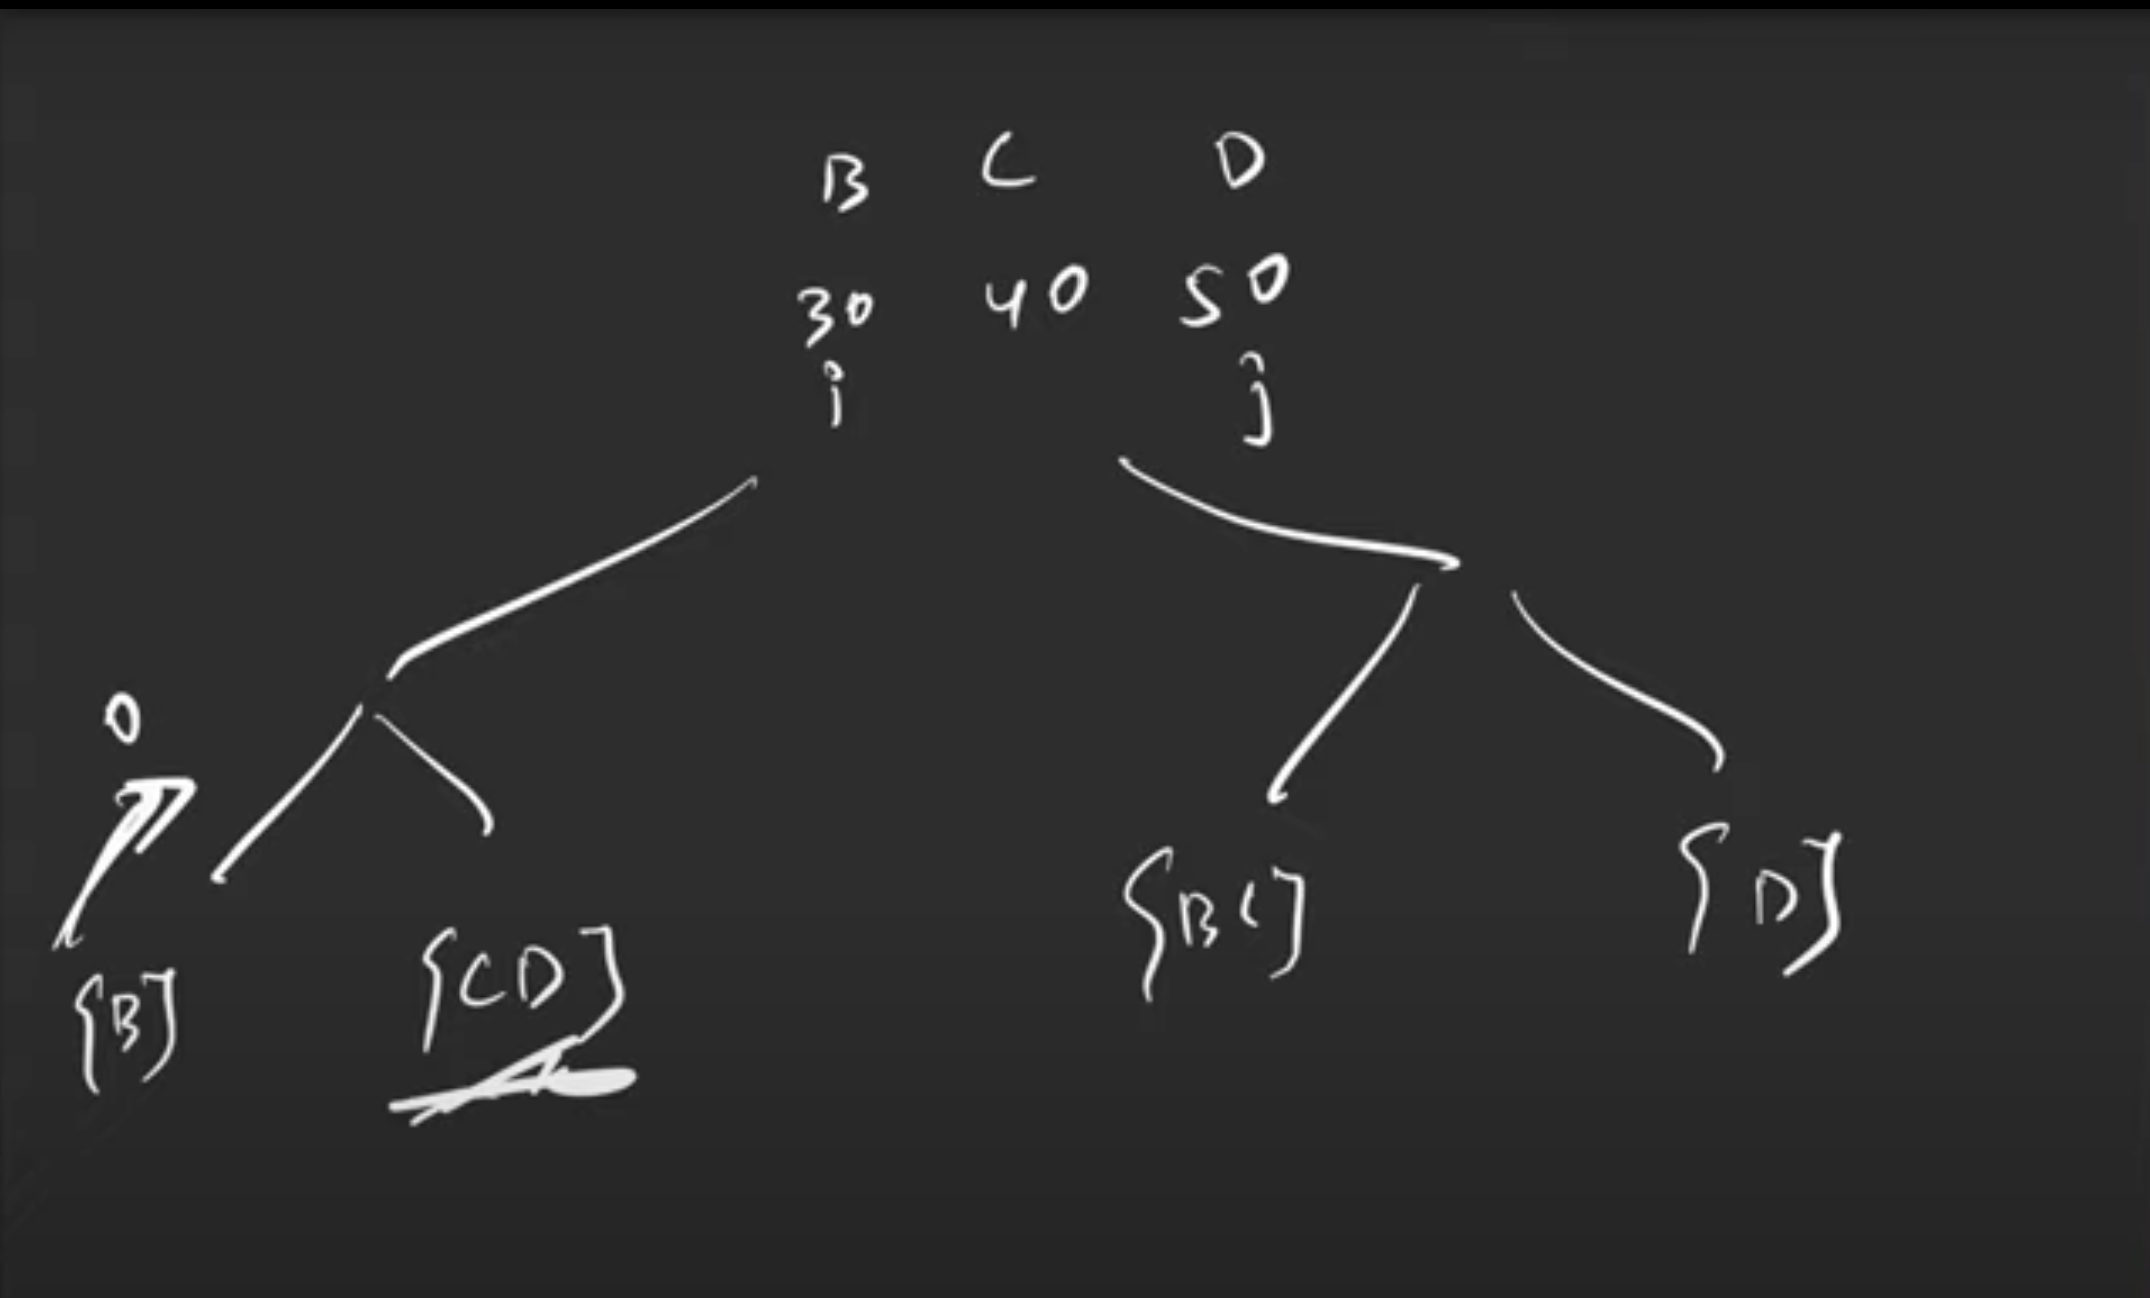 B C D
30 40 50
i j
0
{B} {CD} {BC} {D}